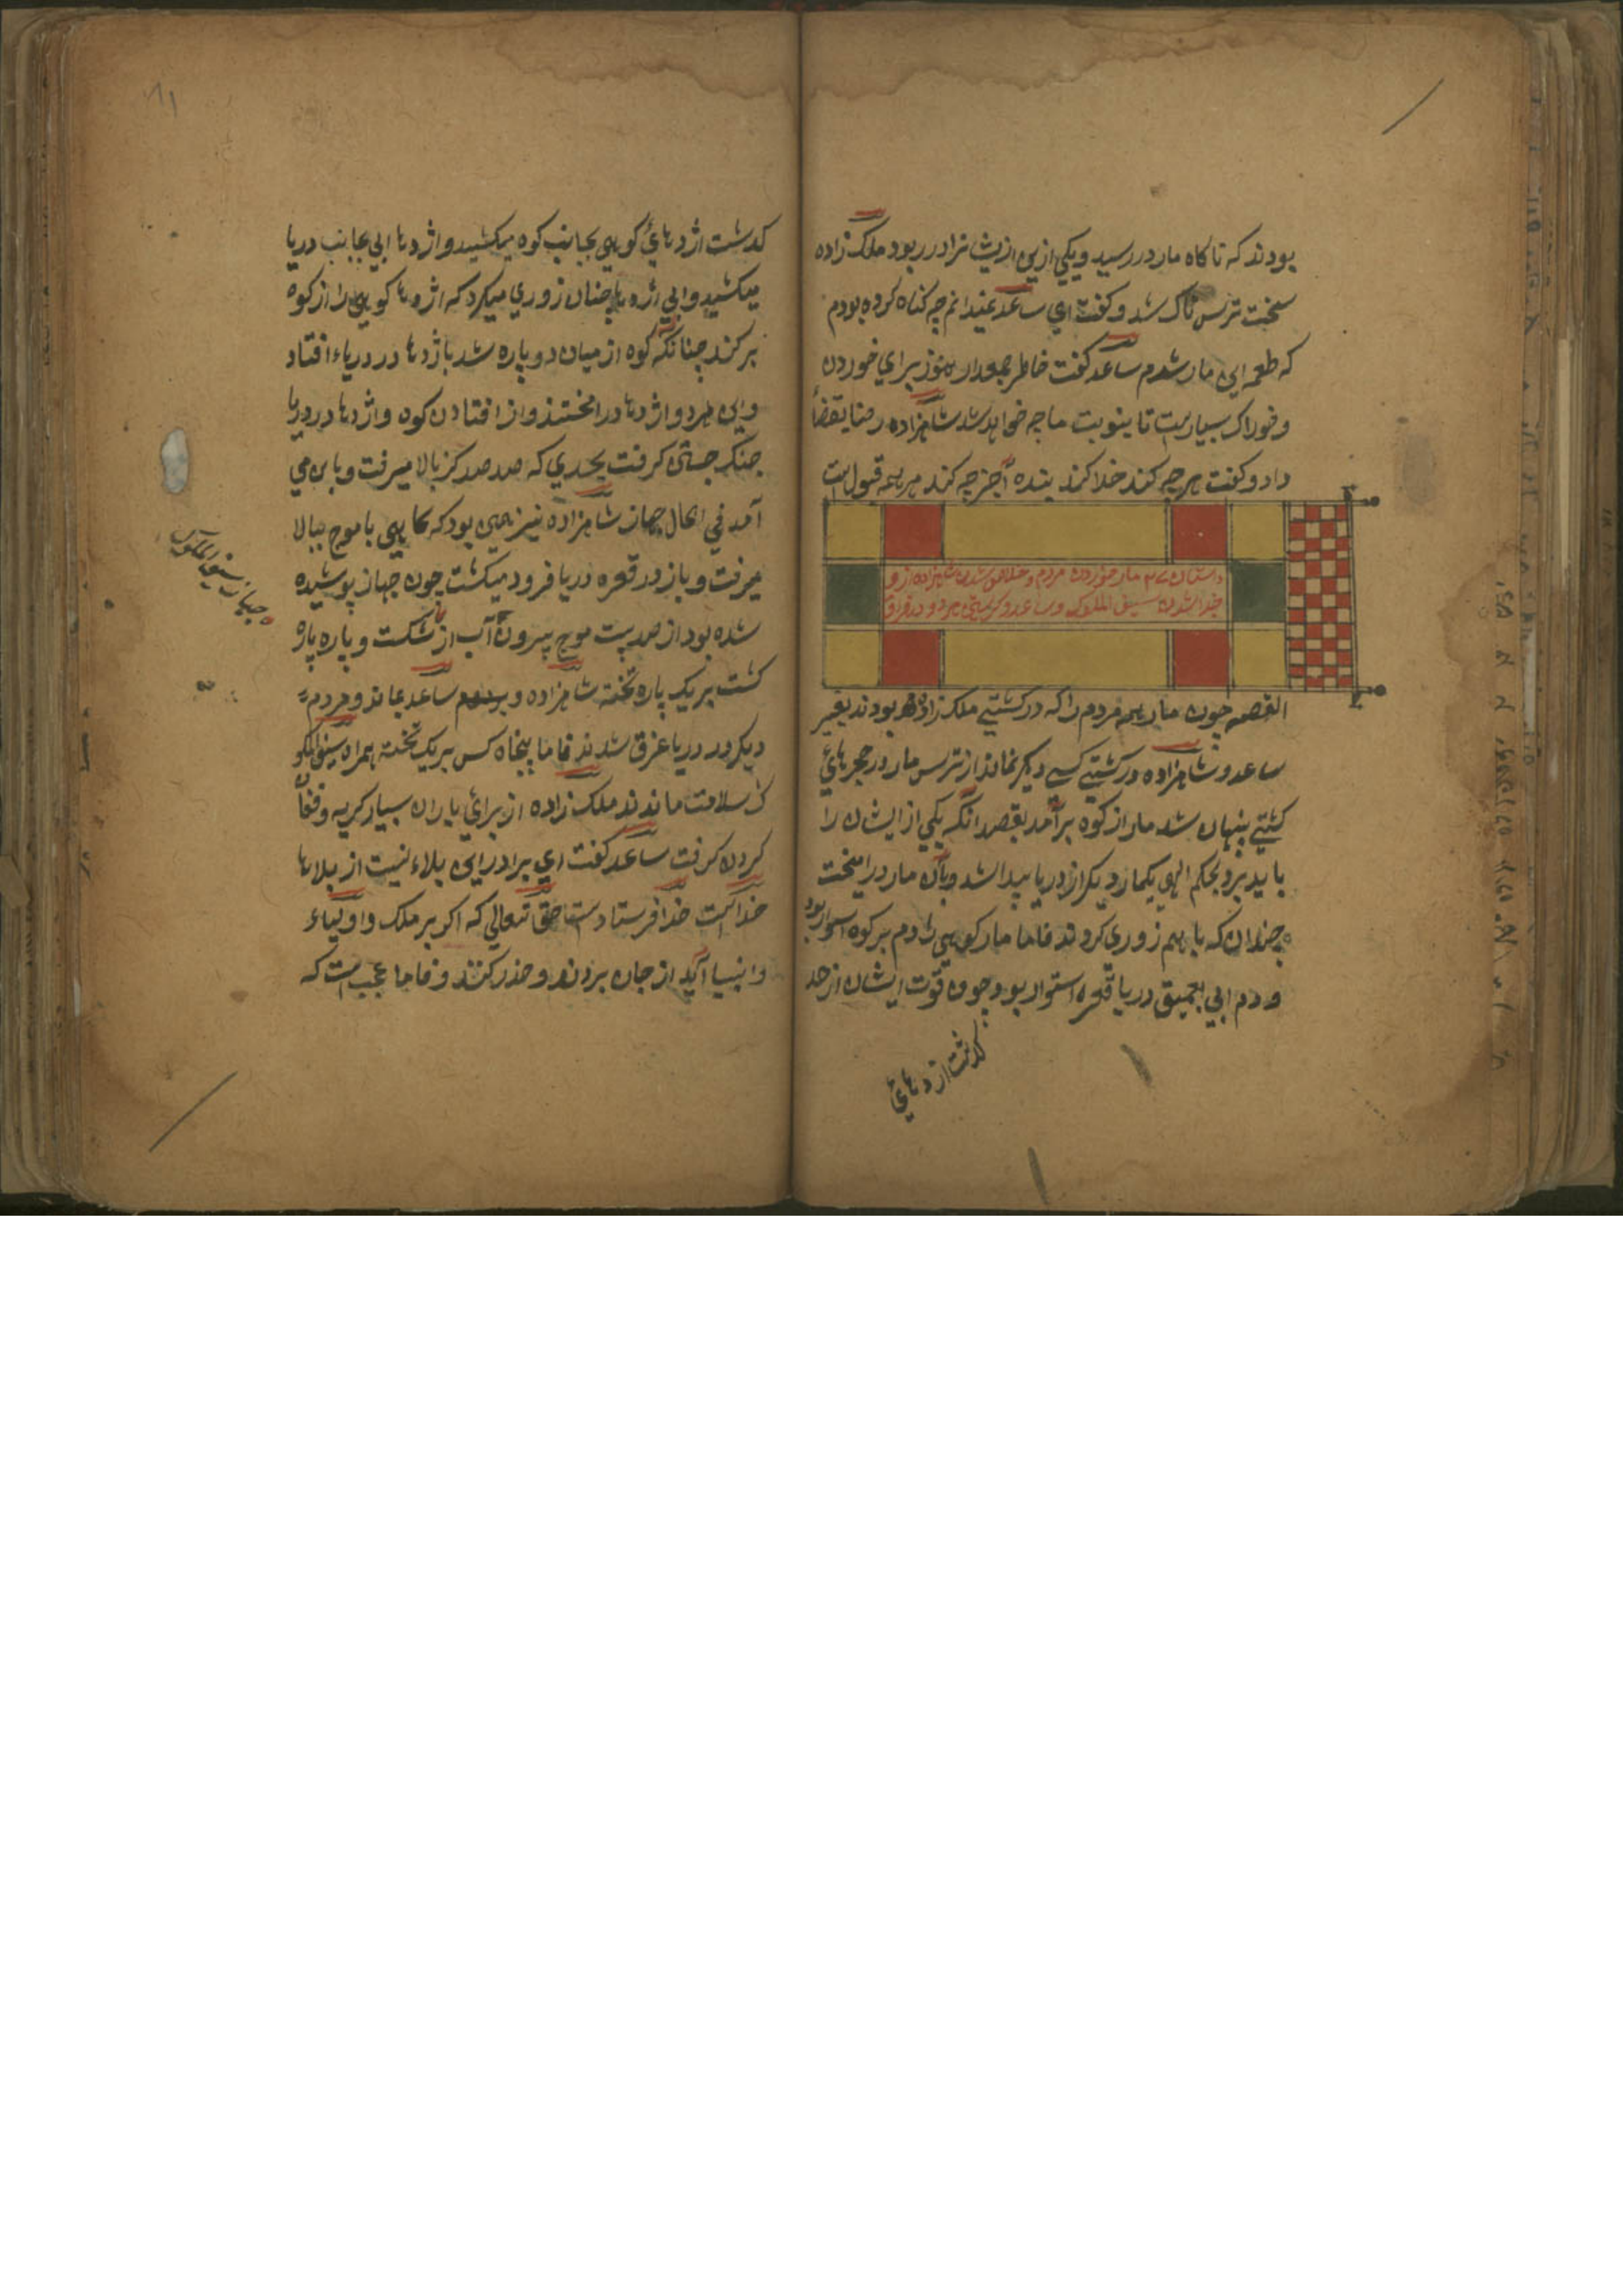 بودند که ناکاه مار در رسید و یکی ازین ازیشانرا در ربود ملک زاده
سخت ترس ناک شد و کفت ای ساعد نمیدانم چه کناه کرده بودم
که طعمه این مار شدم ساعد کفت خاطر جمعدار هنوز برای خوردن
و خوراک بسیارست تا بنوبت ما چه خواهد شد شاهزاده رضا بقضا
داد و کفت هرچه کند خدا کند بنده آجز چه کند مر همه قبول است
داستان ۲۷ مار خوردن مردم و خلاص شدن شاهزاده ازو
جدا شدن سیف الملوک و ساعد و کشتی هر دو در فراق
القصه چون مار همه مردم را که در کشتیے ملک زاده بودند بغیر
ساعد و شاهزاده در کشتیے کسے دیکر نماند از ترس مار در حجرهائ
کشتیے پنهان شد مار از کوه برآمد بقصد انکه یکی از ایشان را
باید برد بحکم الهی یکمار دیکر از دریا پیدا شد و بآن مار در امیخت
چندان که باهم زوری کردند فاما مار کوهی را دم بر کوه استوار بود
و دم ابی بعمیق دریا قعره استوار بود چون قوت ایشان از حد
کدشت اژدهائ
کدشت اژدهائ کوهی بجانب کوه میکشید و اژدها ابی بجانب دریا
میکشید و ابی اژدها چنان زوری میکرد که اژدها کوهی را از کوه
برکند چنانکه کوه از میان دو پاره شد با اژدها در دریاء افتاد
و این هردو اژدها در امختند و از افتادن کوه و اژدها در دریا
جنک جستی کرفت بحدی که صد صد کز بالا میرفت و باین می
آمد فی الحال جهاز شاهزاده نیز همین بود که کاهی با موج ببالا
میرفت و باز در قعره دریا فرود میکشت چون جهاز پوشیده
شده بود از صدیت موج بیرون آب از شکست و پاره پاره
کشت بر یک پاره تخته شاهزاده و ساعد بماند و مردم
دیکر در دریا غرق شدند فاما پنجاه کس بر یک تخته همراه سیف الملو
ک سلامت ماندند ملک زاده از برائ یاران بسیار کریه و فغان
کردن کرفت ساعد کفت ای برادر این بلاء نیست از بلاها
خداست خدا فرستادست حق تعالی که اکر بر ملک و اولیاء
و انبیا آید از جان بردند و حذر کنند و فاما عجب است که